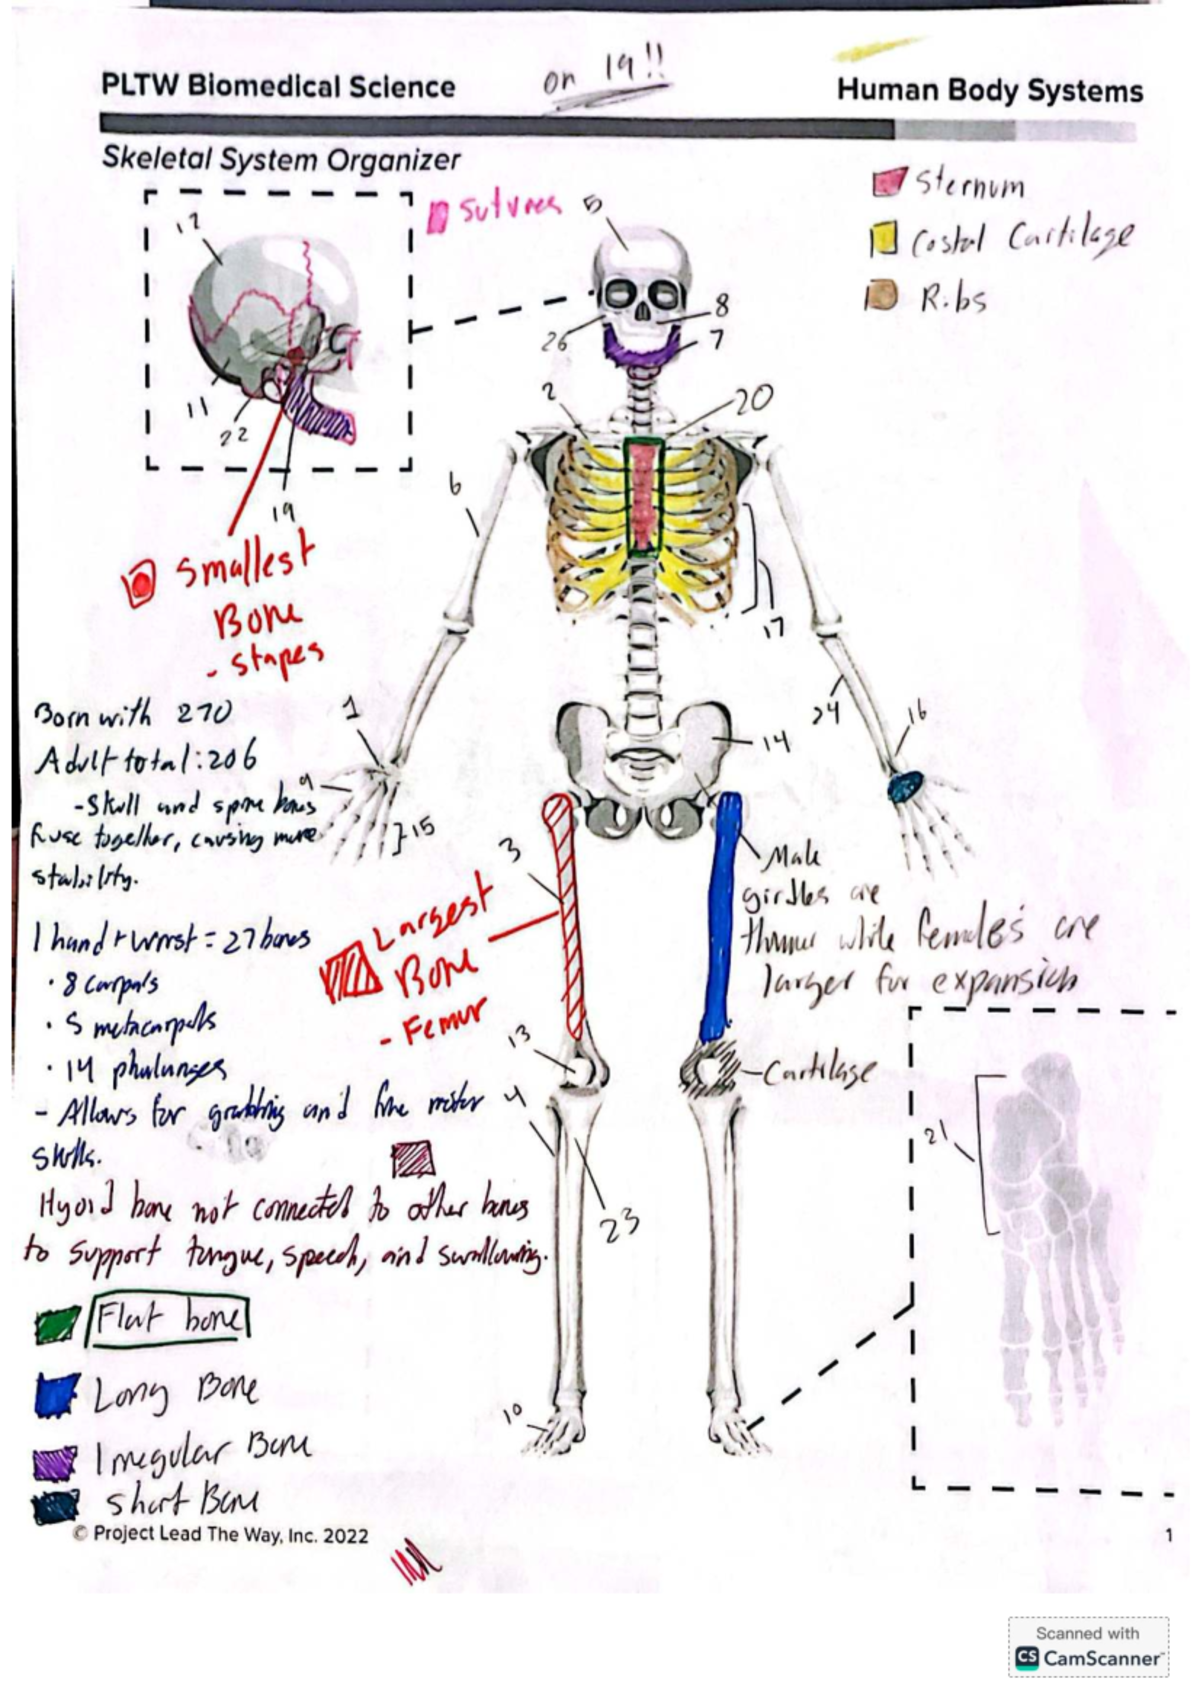 on 19!!
PLTW Biomedical Science
Human Body Systems
Skeletal System Organizer
sutures
Sternum
Costal Cartilage
Ribs
12
11
22
19
5
8
26
7
2
20
6
17
Smallest
Bone
- stapes
Born with 270
Adult total: 206
- Skull and spine bones
fuse together, causing more
stability.
1
9
15
24
16
14
3
1 hand + wrist = 27 bones
• 8 carpals
• 5 metacarpals
• 14 phalanges
- Allows for grabbing and fine motor
skills.
Largest
Bone
- Femur
Male
girdles are
thinner while females are
larger for expansion
13
Cartilage
4
23
21
Hyoid bone not connected to other bones
to support tongue, speech, and swallowing.
Flat bone
Long Bone
Irregular Bone
Short Bone
10
© Project Lead The Way, Inc. 2022
1
Scanned with
CS CamScanner